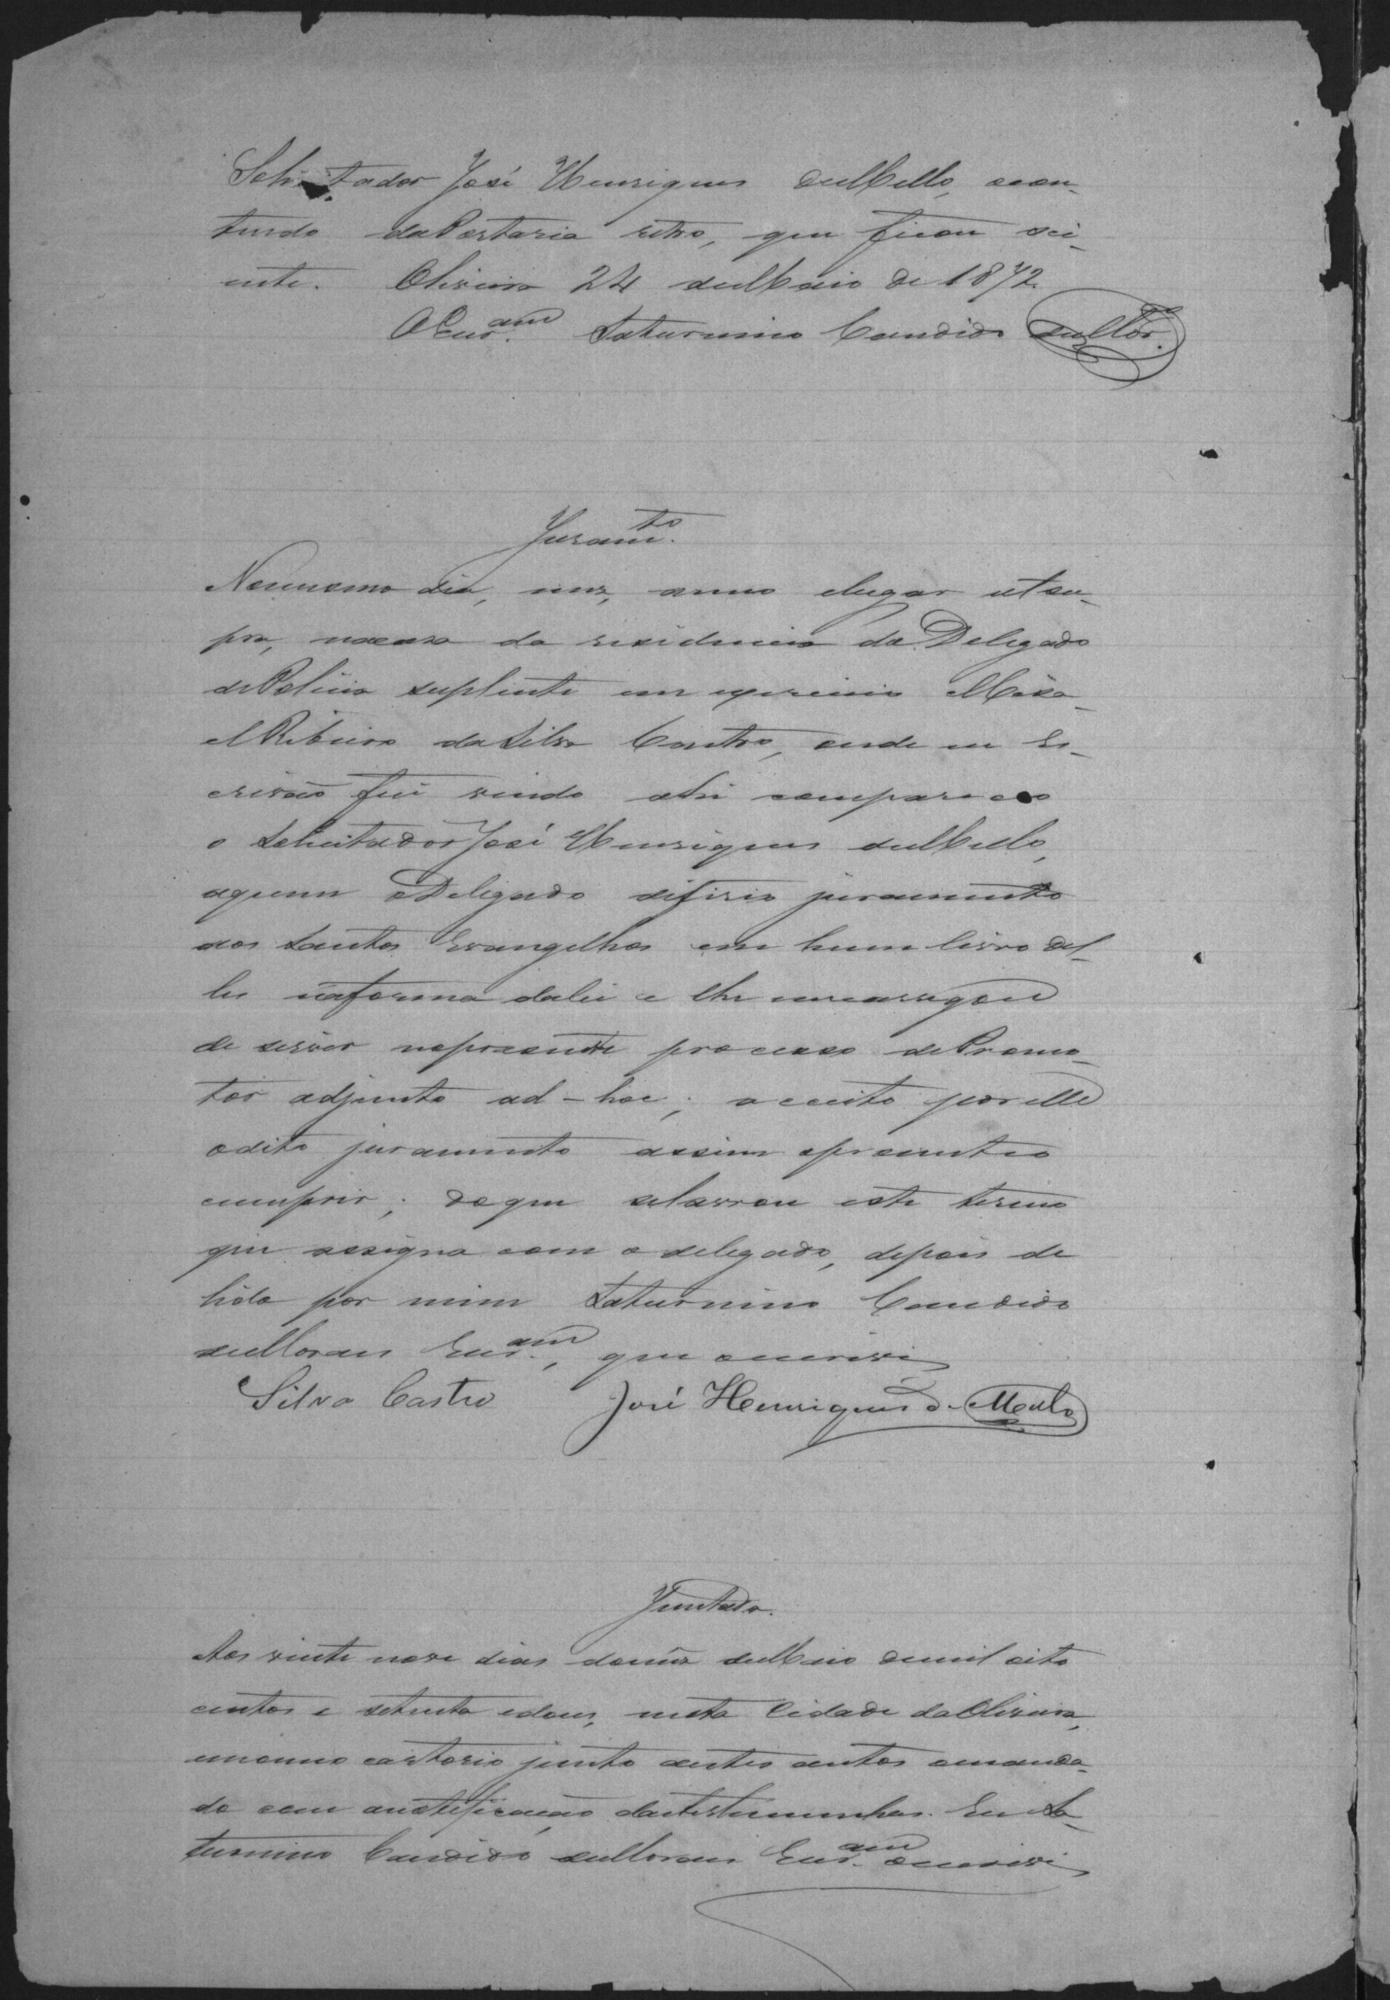 Solicitador José Henriques deMello, ocon-
tiudo daPortaria retro, que ficou sci-
ente. Oliveira 24 deMaio de 1872.
OEscr.am Saturnino Candido deMor.
Juram.to
Nomesmo dia, mez, anno elugar utsu-
pra, nacasa da residencia do Delegado
dePolicia suplente em exercicio Misa-
el Ribeiro daSilva Castro, onde eu Es-
crivão fui vindo ahi compareceo
o Solicitador José Henriques deMello,
aquem oDelegado diferio juramento
aos Santos Evangelhos em hum livro del-
les naforma dalei e lhe encarregou
de servir nopresente processo dePromo-
tor adjunto ad-hoc; aceito por elle
odito juramento assim oprometteo
cumprir; doque selavrou este termo
que assigna com o delegado, depois de
lido por mim Saturnino Candido
deMoraes Escr.am, que oescrevi
Silva Castro José Henriques de Mello
Juntada.
Aos vinte nove dias domez deMaio demil oito
centos e setenta edous, nesta Cidade daOliveira,
emmeu cartorio junto aestes autos omanda-
do com anotificação dastestemunhas. Eu Sa-
turnino Candido deMoraes Escr.am oescrevi